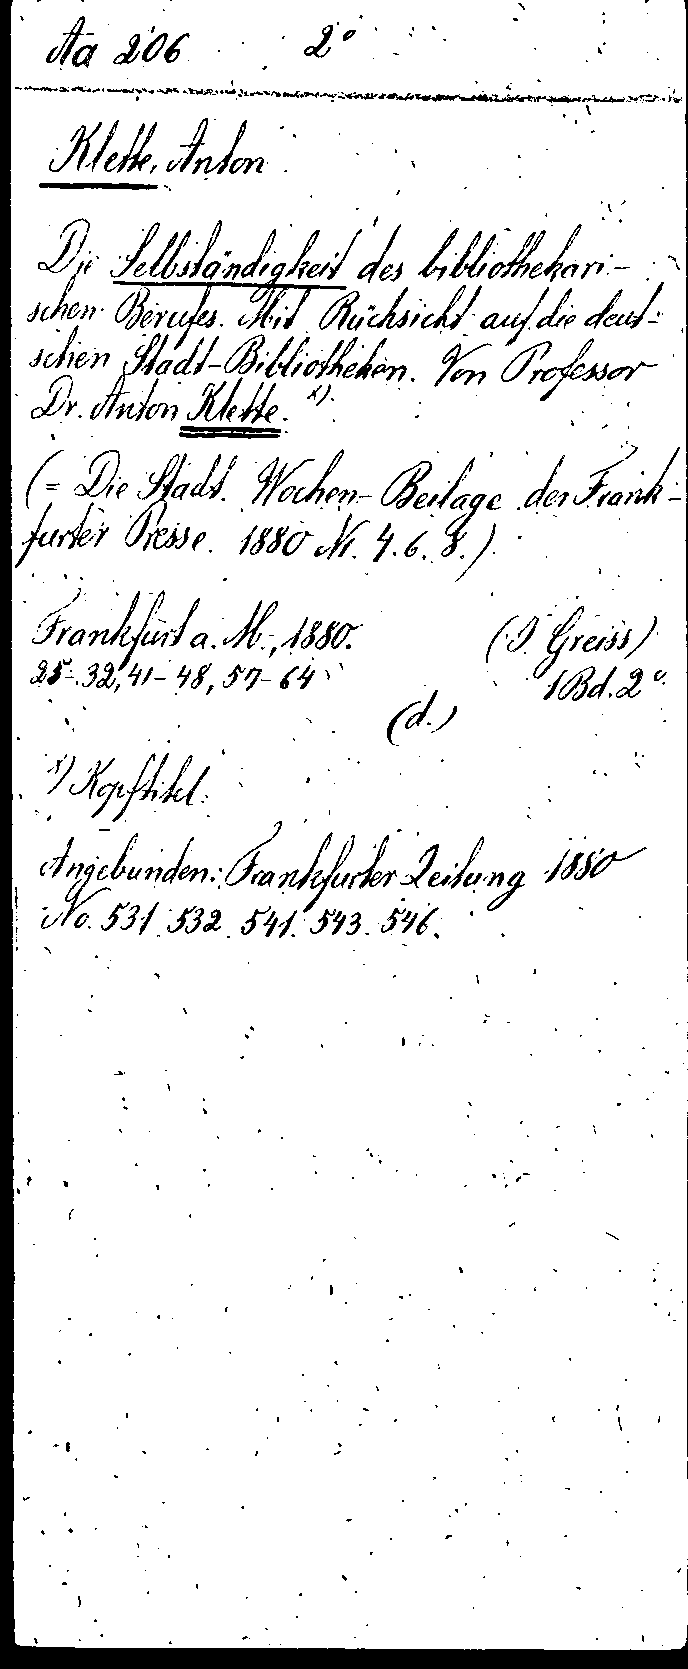 Aa 206 2°
Klette, Anton
Die Selbständigkeit des bibliothekari-
schen Berufes. Mit Rücksicht auf die deut-
schen Stadt-Bibliotheken. Von Professor
Dr. Anton Klette. x)
(= Die Stadt. Wochen-Beilage der Frank-
furter Presse. 1880 Nr. 4. 6. 8.)
Frankfurt a. M., 1880. (J. Greiss)
25-32, 41-48, 57-64 1 Bd. 2°
(d.)
x) Kopftitel.
Angebunden: Frankfurter Zeitung 1880
No. 531. 532. 541. 543. 546.